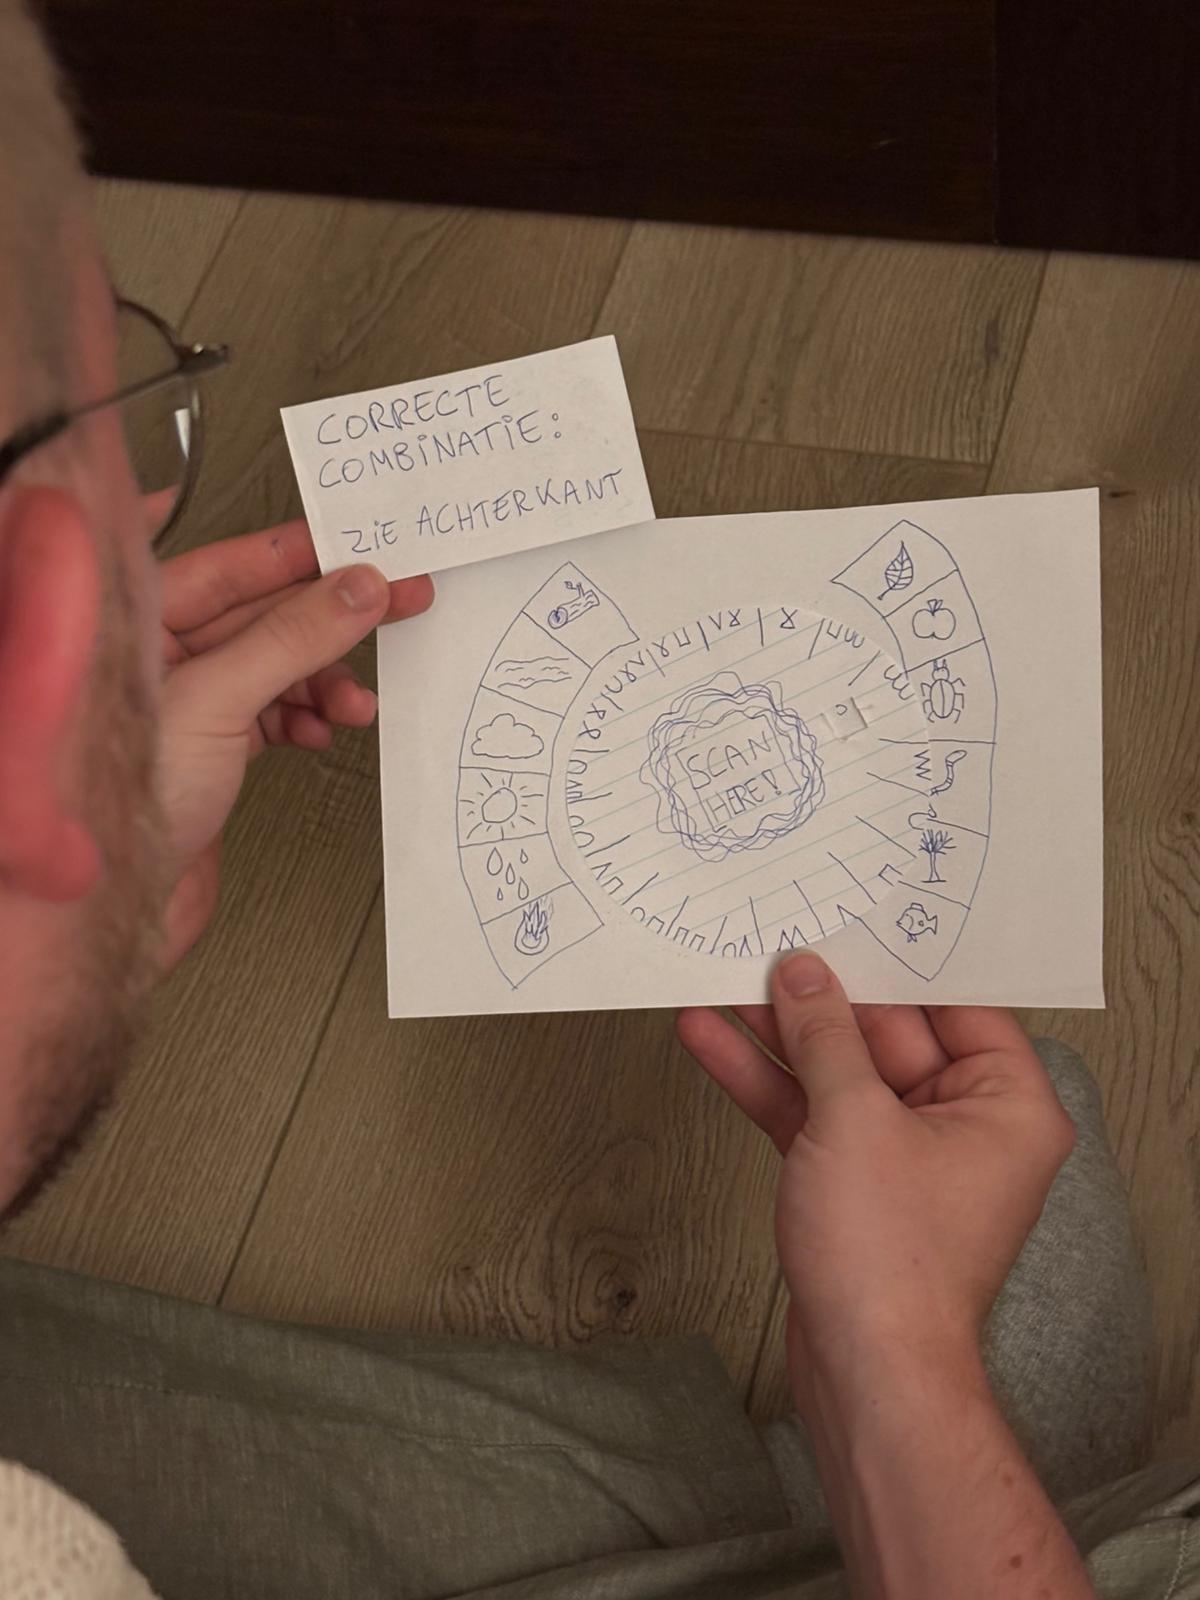 CORRECTE
COMBINATIE:
ZIE ACHTERKANT
SCAN
HERE!